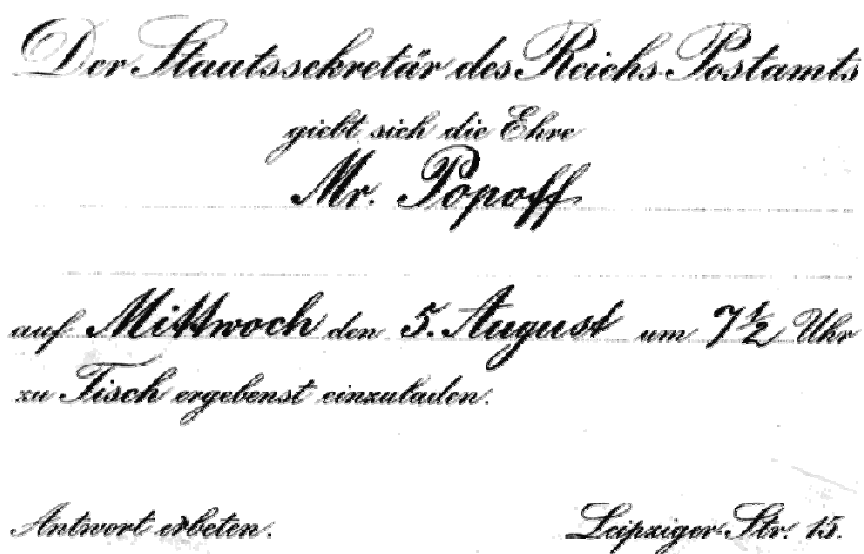 Der Staatssekretär des Reichs-Postamts
giebt sich die Ehre
Mr. Popoff
auf Mittwoch den 5. August um 7½ Uhr
zu Tisch ergebenst einzuladen.
Antwort erbeten. Leipziger Str. 15.